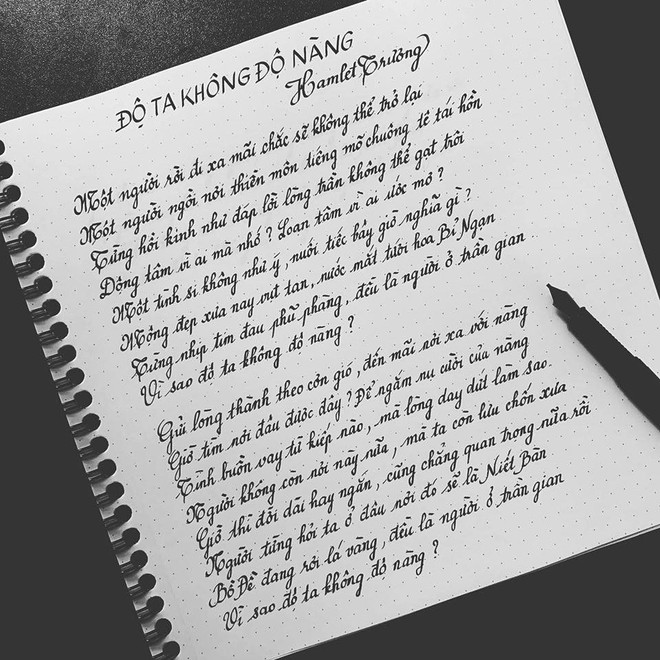 ĐỘ TA KHÔNG ĐỘ NÀNG
Hamlet Trương
Một người rời đi xa mãi chắc sẽ không thể trở lại
Một người ngồi nơi thiền môn tiếng mõ chuông tê tái hồn
Từng hồi kinh như đáp lời lòng trần không thể gạt trôi
Động tâm vì ai mà nhớ? Loạn tâm vì ai ước mơ?
Một tình si không như ý, nuối tiếc bây giờ nghĩa gì?
Mộng đẹp xưa nay vụt tan, nước mắt tưới hoa Bỉ Ngạn
Từng nhịp tim đau phũ phàng, đều là người ở trần gian
Vì sao độ ta không độ nàng?
Gửi lòng thành theo cơn gió, đến mãi nơi xa với nàng
Giờ tìm nơi đâu được đây? Để ngắm nụ cười của nàng
Tình buồn vay từ kiếp nào, mà lòng day dứt làm sao
Người không còn nơi này nữa, mà ta còn lưu chốn xưa
Giờ thì đời dài hay ngắn, cũng chẳng quan trọng nữa rồi
Người từng hỏi ta ở đâu nơi đó sẽ là Niết Bàn
Bồ Đề đang rơi lá vàng, đều là người ở trần gian
Vì sao độ ta không độ nàng?